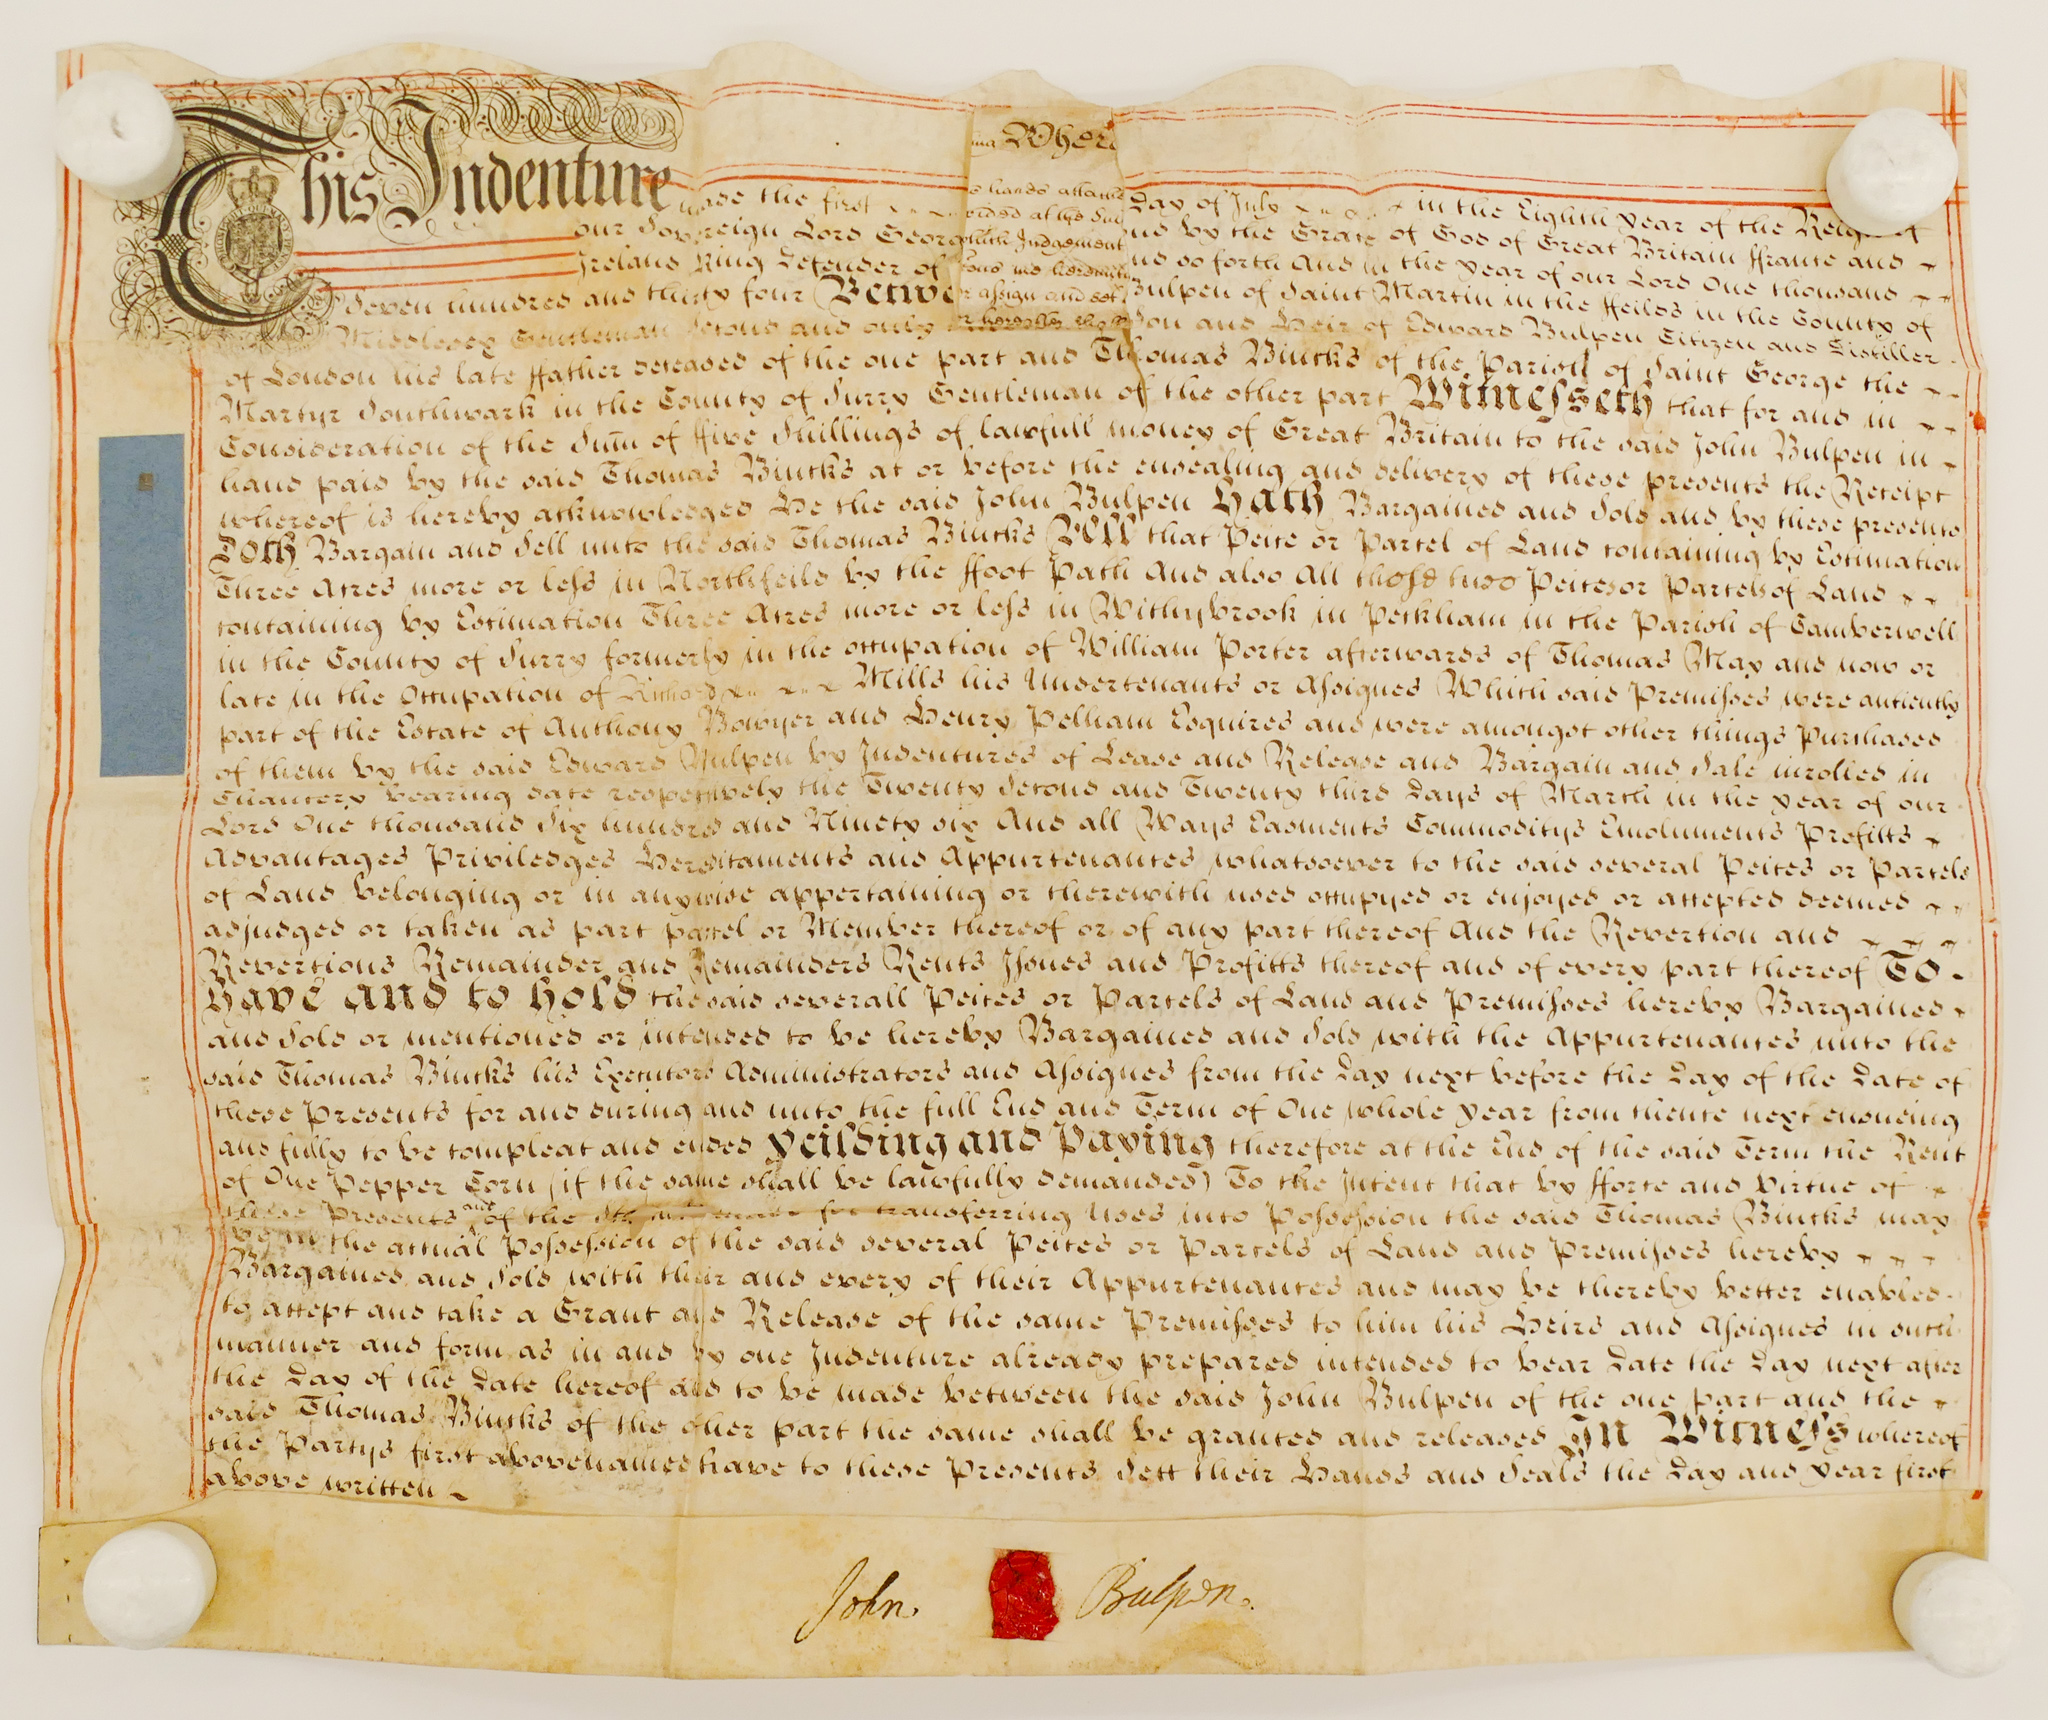 This Indenture made the first Day of July in the Eighth year of the Reign of
our Sovereign Lord George by the Grace of God of Great Britain ffrance and
Ireland King Defender of and so forth And in the year of our Lord One thousand
Seven hundred and thirty four Betwe Bulpen of Saint Martin in the ffeilds in the County of
Middlesex Gentleman second and only Son and Heir of Edward Bulpen Citizen and Distiller
of London his late ffather deceased of the one part and Thomas Bincks of the Parish of Saint George the
Martyr Southwark in the County of Surry Gentleman of the other part Witnesseth that for and in
Consideration of the Sum of ffive Shillings of lawfull money of Great Britain to the said John Bulpen in
hand paid by the said Thomas Bincks at or before the ensealing and delivery of these presents the Receipt
whereof is hereby acknowledged He the said John Bulpen Hath Bargained and Sold and by these presents
Doth Bargain and Sell unto the said Thomas Bincks All that Peice or Parcel of Land containing by Estimation
Three Acres more or less in Northfeild by the ffoot Path And also All those two Peices or Parcels of Land
containing by Estimation Three Acres more or less in Withybrook in Peckham in the Parish of Camberwell
in the County of Surry formerly in the occupation of William Porter afterwards of Thomas May and now or
late in the Occupation of Richard Mills his Undertenants or Assignes Which said Premisses were antiently
part of the Estate of Anthony Bowyer and Henry Pelham Esquires and were amongst other things Purchased
of them by the said Edward Bulpen by Indentures of Lease and Release and Bargain and Sale inrolled in
Chancery bearing date respectively the Twenty Second and Twenty third Days of March in the year of our
Lord One thousand Six hundred and Ninety six And all Ways Easments Commoditys Emoluments Profitts
Advantages Priviledges Hereditaments and Appurtenances whatsoever to the said several Peices or Parcels
of Land belonging or in anywise appertaining or therewith used occupyed or enjoyed or accepted deemed
adjudged or taken as part parcel or Member thereof or of any part thereof And the Revertion and
Revertions Remainder and Remainders Rents Issues and Profitts thereof and of every part thereof To
have and to hold the said severall Peices or Parcels of Land and Premisses hereby Bargained
and Sold or mentioned or intended to be hereby Bargained and Sold with the Appurtenances unto the
said Thomas Bincks his Executors Administrators and Assignes from the Day next before the Day of the Date of
these Presents for and during and unto the full End and Term of One whole year from thence next ensueing
and fully to be compleat and ended Yeilding and Paying therefore at the End of the said Term the Rent
of One Pepper Corn (if the same shall be lawfully demanded) To the Intent that by fforce and Virtue of
these Presents and of the for transferring Uses into Possession the said Thomas Bincks may
be in the actual Possession of the said several Peices or Parcels of Land and Premisses hereby
Bargained and Sold with their and every of their Appurtenances and may be thereby better enabled
to accept and take a Grant and Release of the same Premisses to him his Heirs and Assignes in such
manner and form as in and by one Indenture already prepared intended to bear Date the Day next after
the Day of the Date hereof and to be made between the said John Bulpen of the one part and the
said Thomas Bincks of the other part the same shall be granted and released In Witness whereof
the Partys first abovenamed have to these Presents Sett their Hands and Seals the Day and year first
above written
John Bulpen